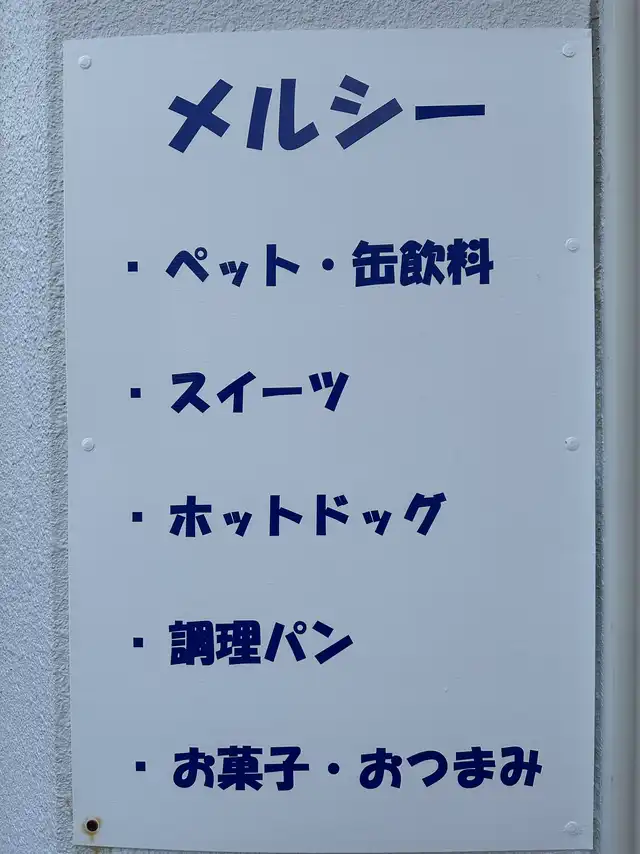 メルシー
・ペット・缶飲料
・スイーツ
・ホットドッグ
・調理パン
・お菓子・おつまみ